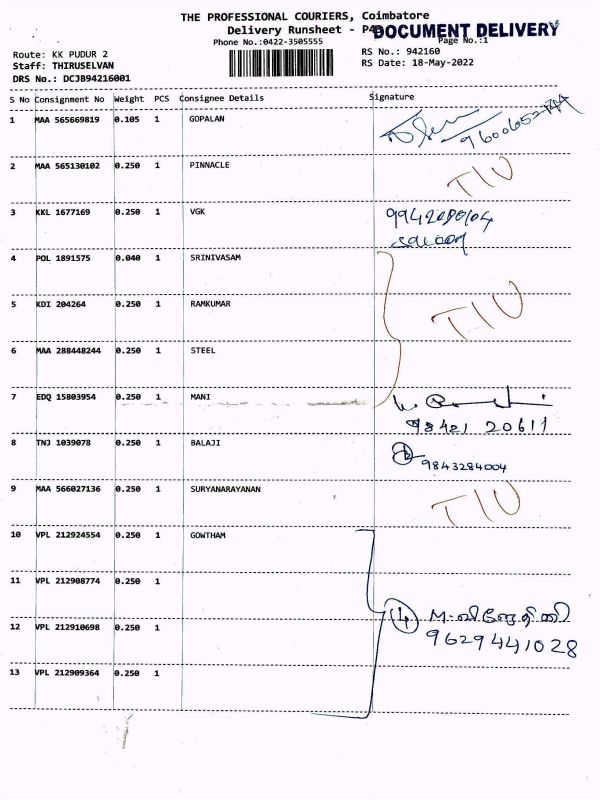 THE PROFESSIONAL COURIERS, Coimbatore
Delivery Runsheet - P4
DOCUMENT DELIVERY
Phone No.:0422-3505555
Page No.:1
Route: KK PUDUR 2
RS No.: 942160
Staff: THIRUSELVAN
RS Date: 18-May-2022
DRS No.: DCJB94216001
S No Consignment No Weight PCS Consignee Details Signature
1 MAA 565669819 0.105 1 GOPALAN
2 MAA 565130102 0.250 1 PINNACLE TIU
3 KKL 1677169 0.250 1 VGK
4 POL 1891575 0.040 1 SRINIVASAM
5 KDI 204264 0.250 1 RAMKUMAR TIU
6 MAA 288448244 0.250 1 STEEL
7 EDQ 15803954 0.250 1 MANI
98421 20611
8 TNJ 1039078 0.250 1 BALAJI
9843284004
9 MAA 566027136 0.250 1 SURYANARAYANAN TIU
10 VPL 212924554 0.250 1 GOWTHAM
11 VPL 212908774 0.250 1
12 VPL 212910698 0.250 1 4 M-
9629441028
13 VPL 212909364 0.250 1